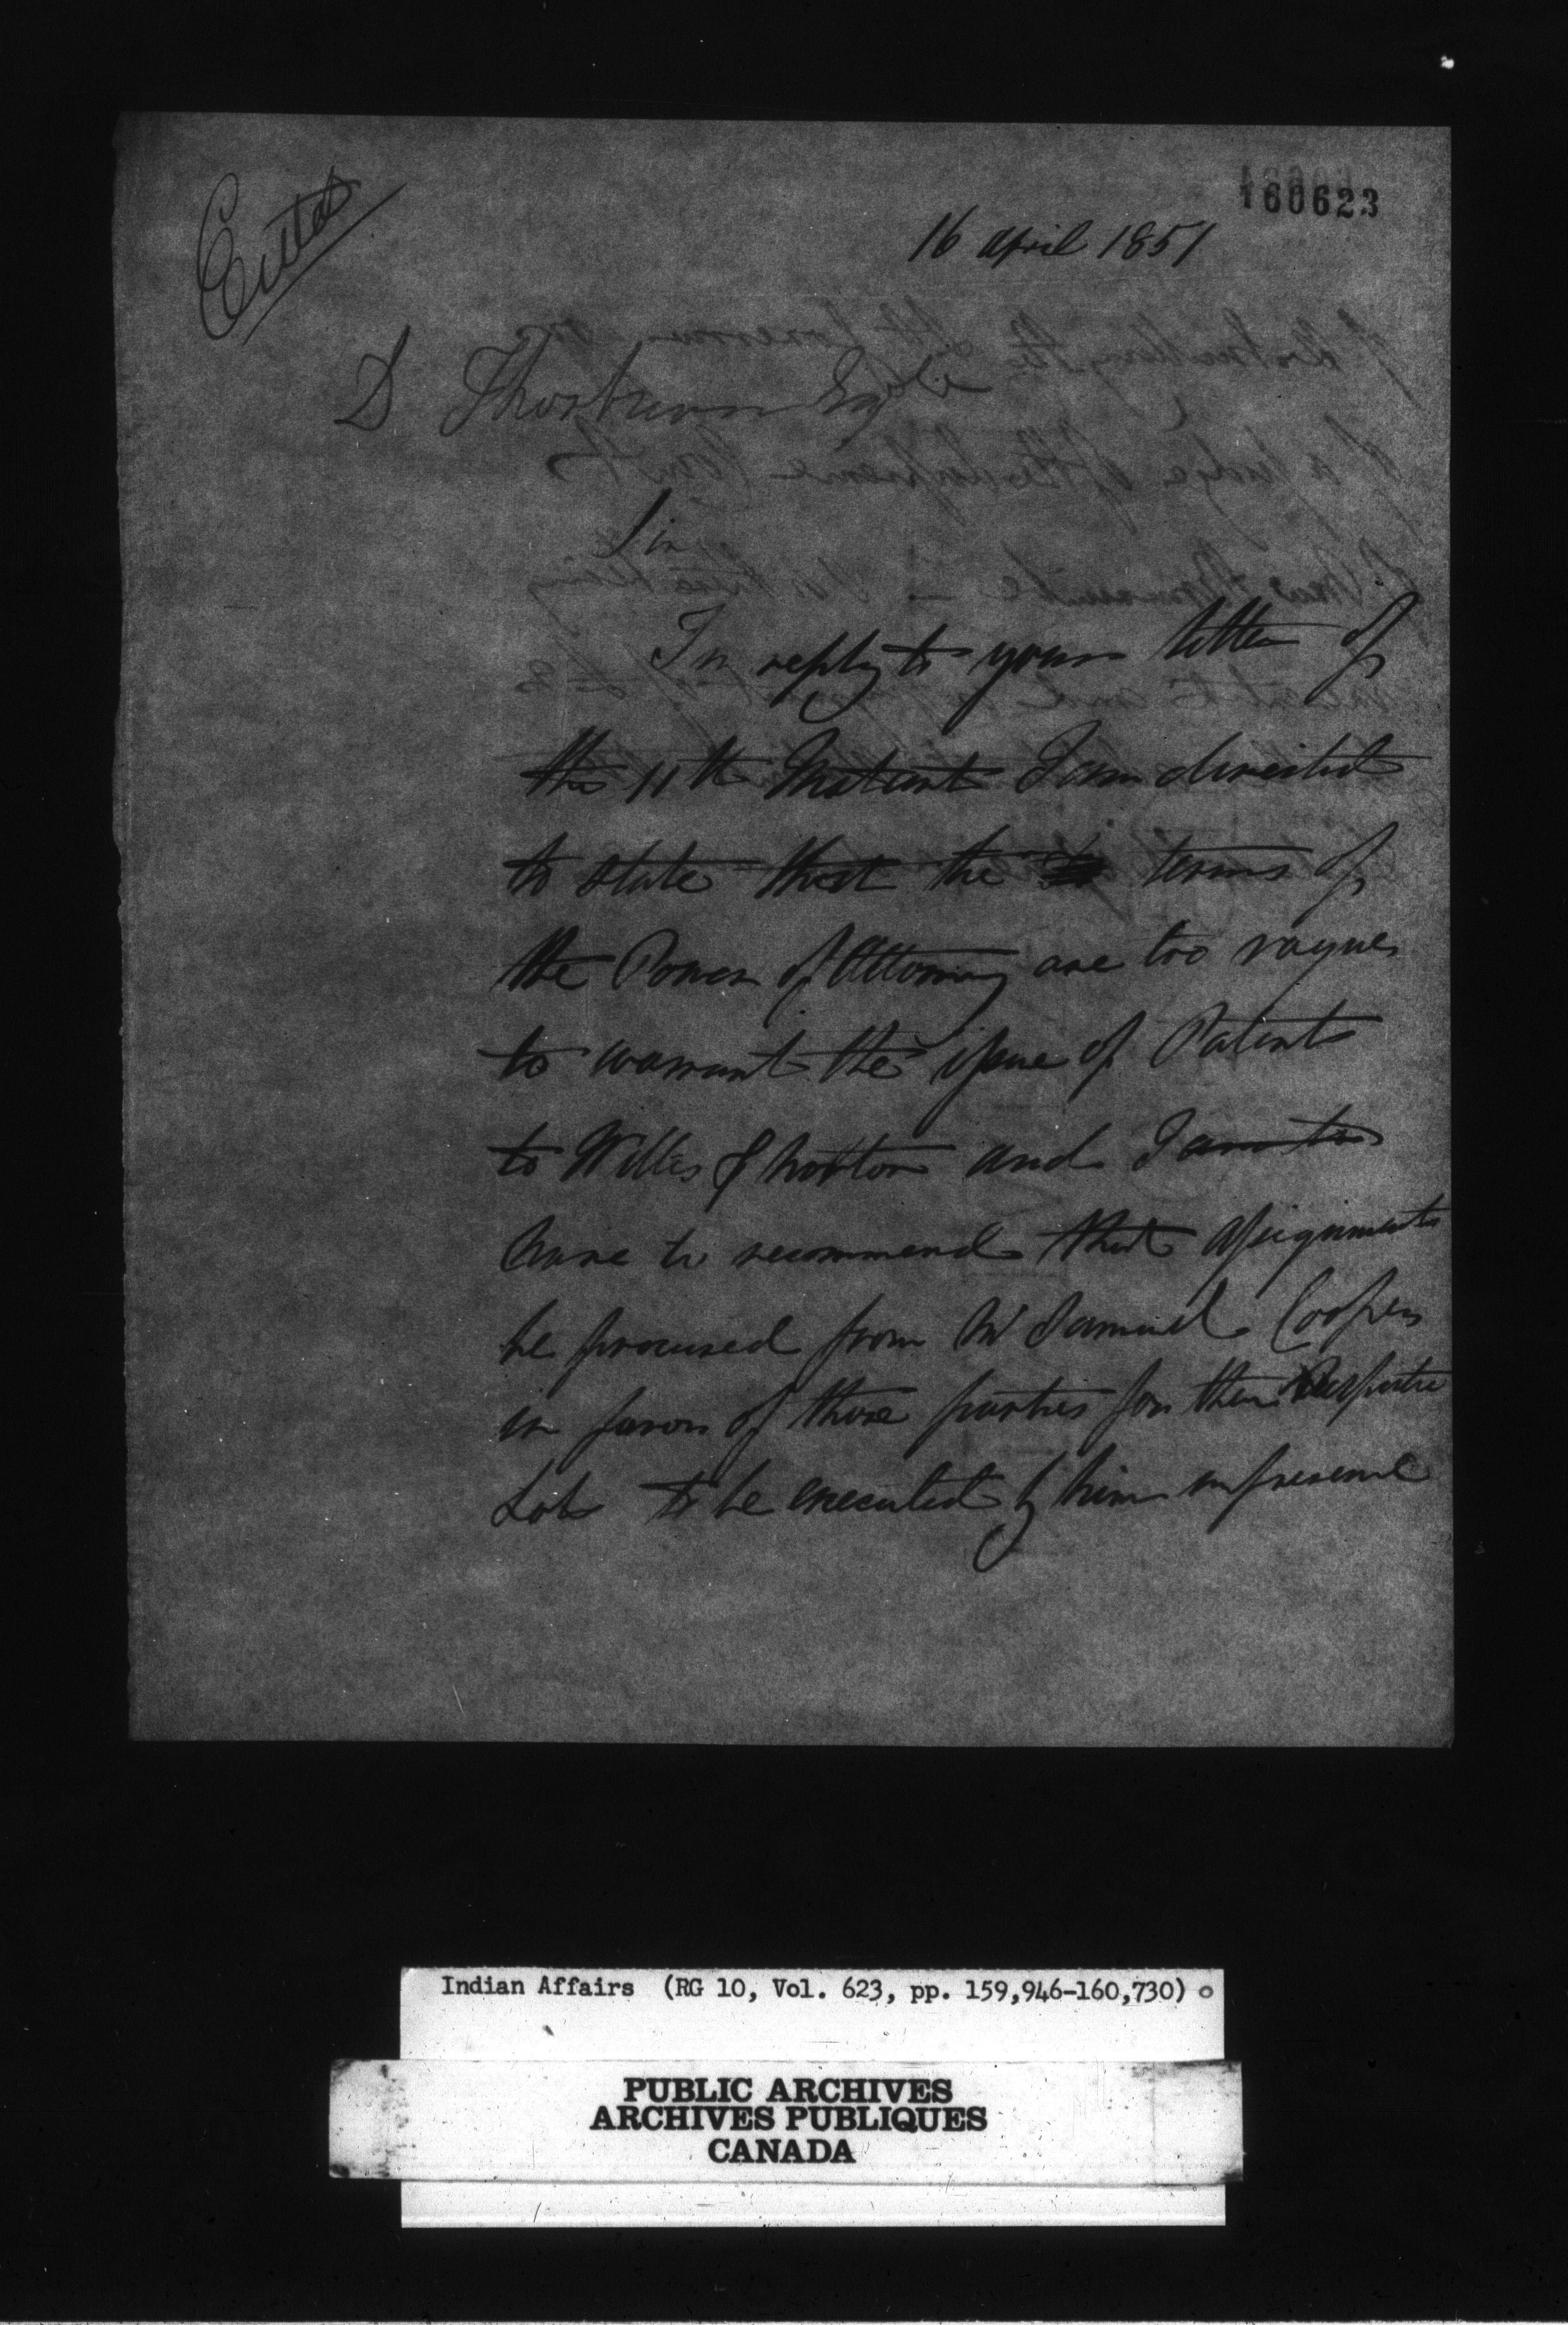 160623
Entd
16 April 1851
D Thorburn Esq
Sir
In reply to your letter of
the 11th Instant I am directed
to state that the terms of
the Power of Attorney are too vague
to warrant the issue of Patents
to Willis & Horton and I am to
have to recommend that assignments
be procured from Mr Samuel Cooper
in favor of those parties for their Respective
Lots to be executed by him in presence
Indian Affairs (RG 10, Vol. 623, pp. 159,946-160,730)
PUBLIC ARCHIVES
ARCHIVES PUBLIQUES
CANADA